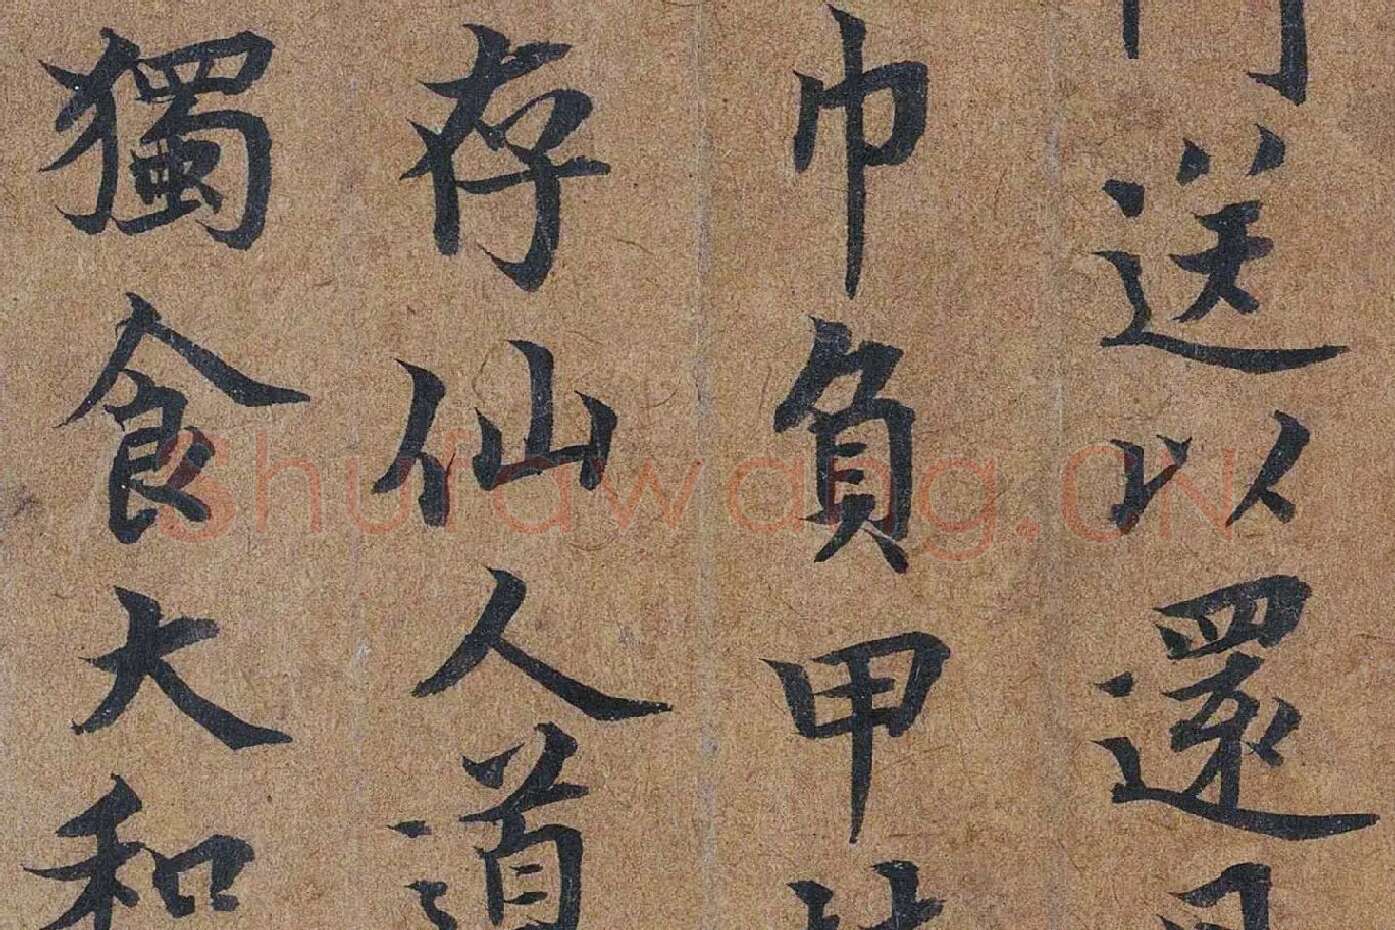 送以還
巾負甲
存仙人道
獨食大和
Shufawang.CN